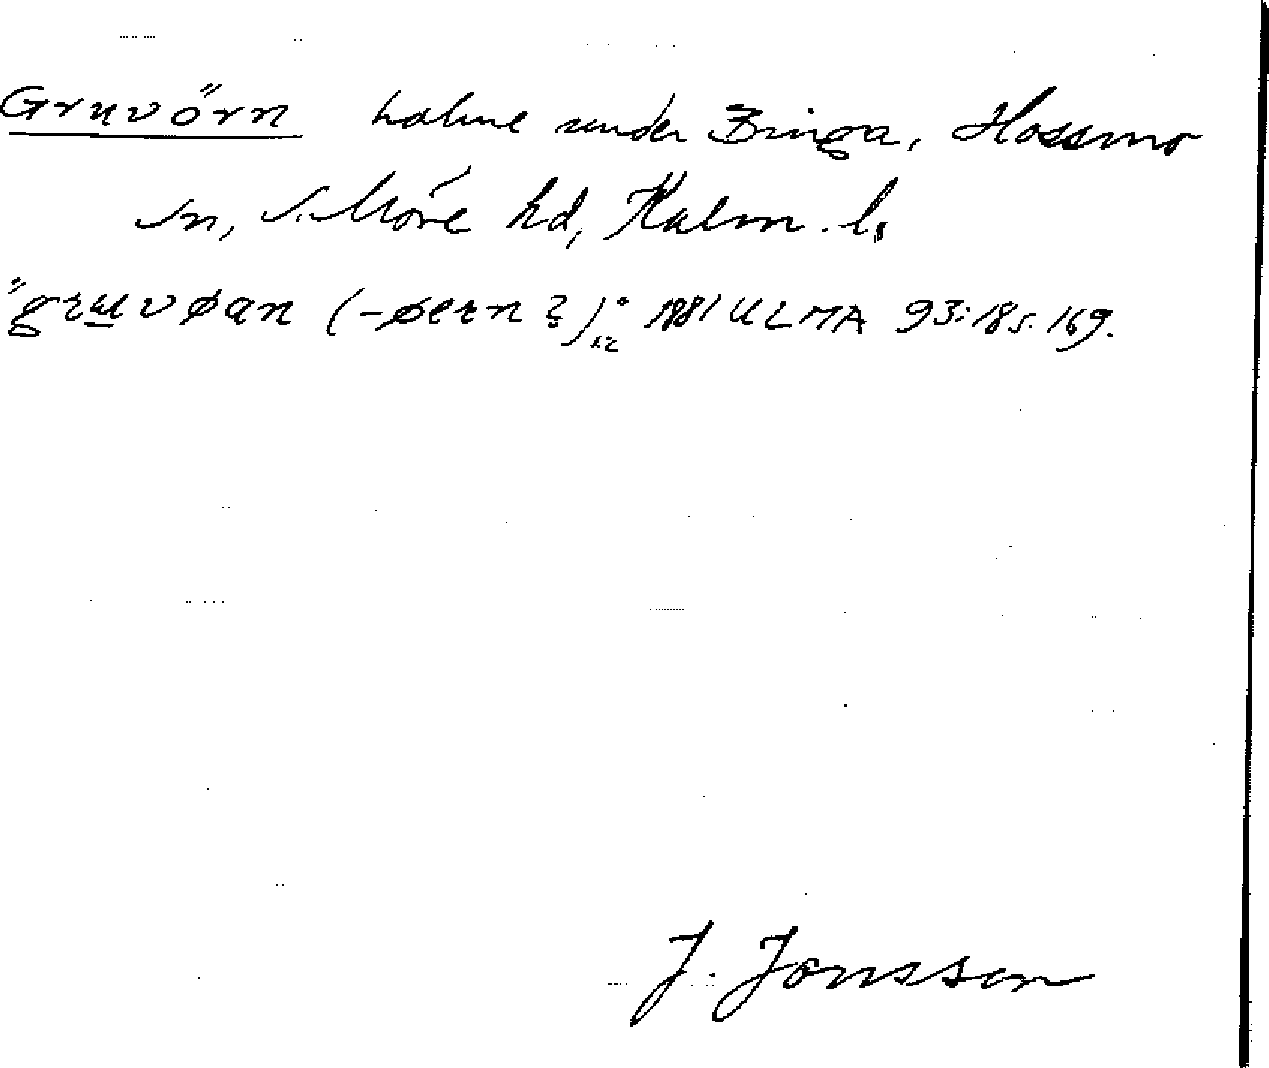 Gruvörn holme under Binga, Hossmo
sn, S. Möre hd, Kalm. l.
"gruvøan (-øern?) 1981 ULMA 93:18 s. 169.
J. Jonsson